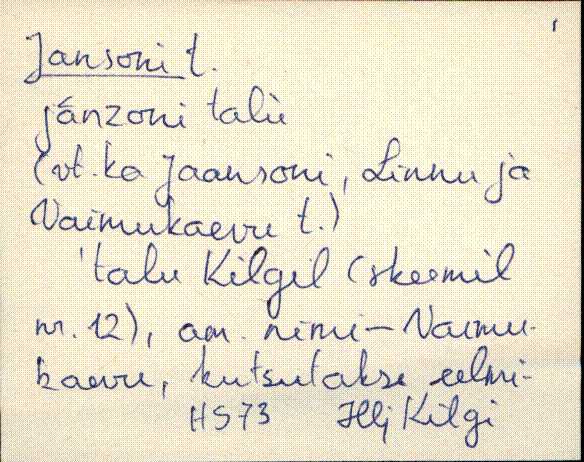 Jansoni t.
jánzoni talù
(vt. ka Jaansoni, Linnu ja
Vaimukaevu t.)
'talu Kilgil (skeemil
nr. 12), am. nimi – Vaimu-
kaevu, kutsutakse eelmi-
HS73 Hlj Kilgi